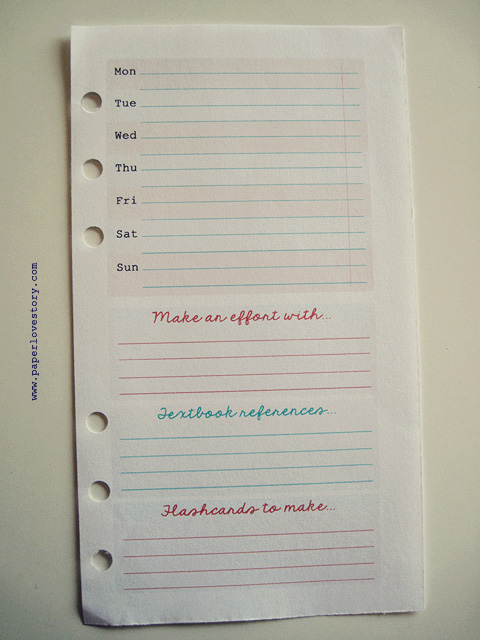 Mon
Tue
Wed
Thu
Fri
Sat
Sun
Make an effort with...
Textbook references...
Flashcards to make...
www.paperlovestory.com